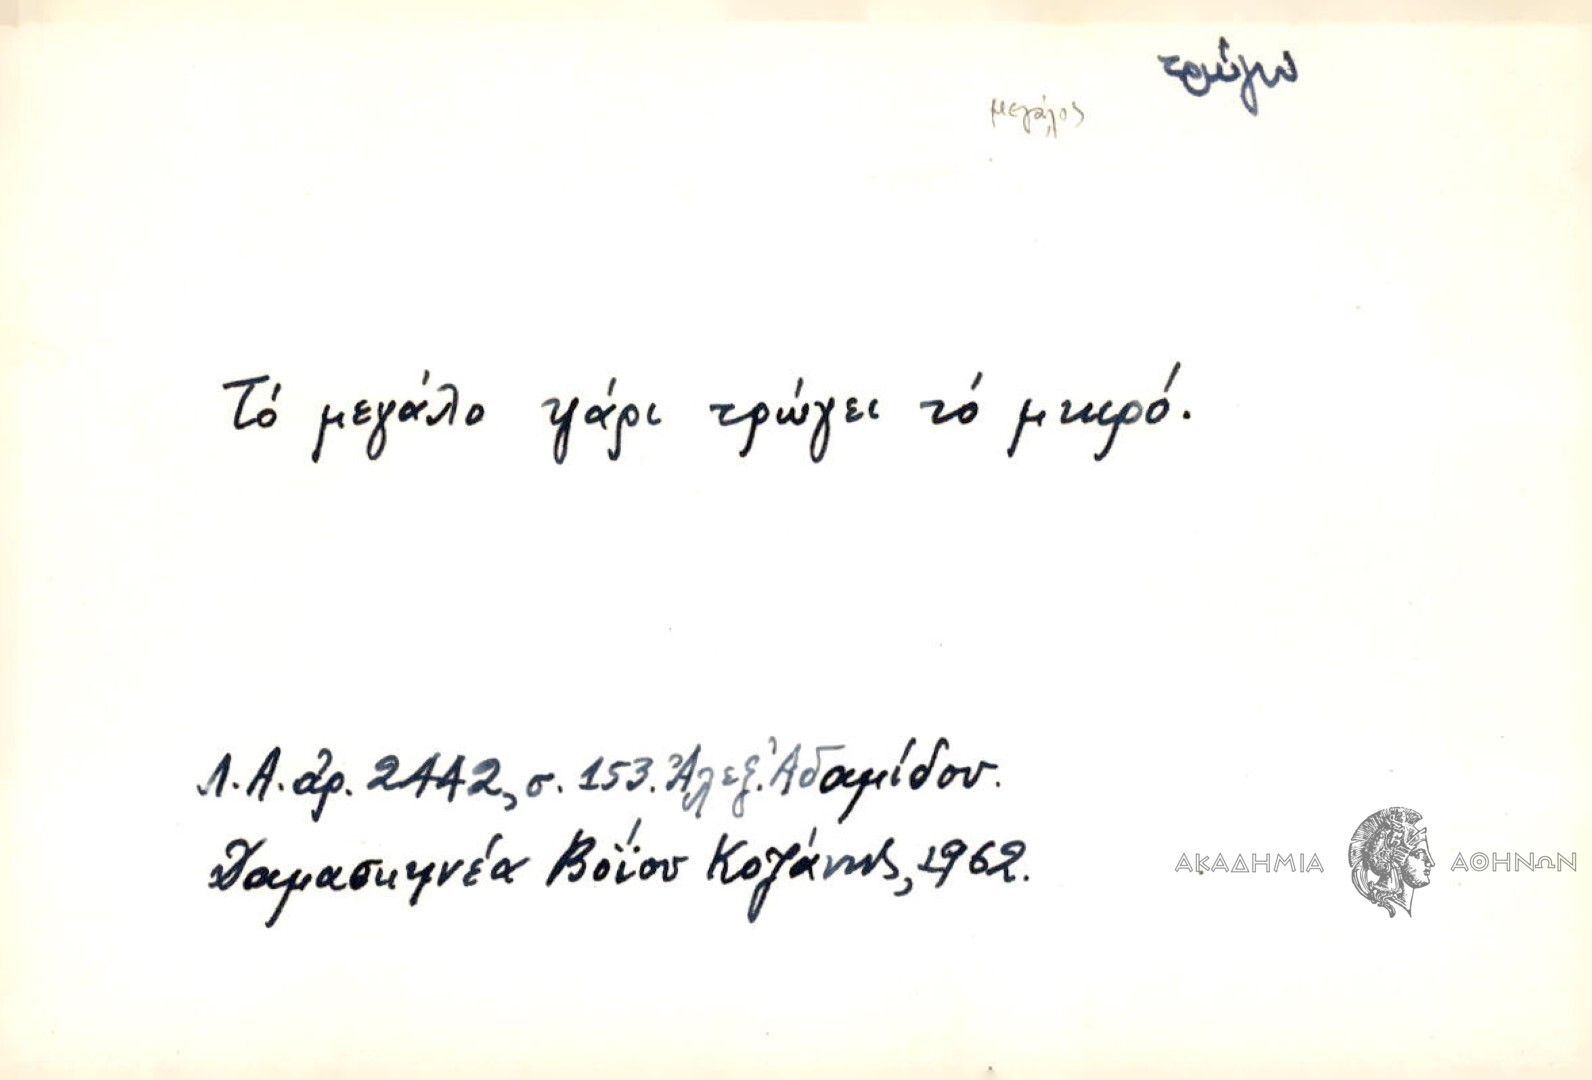 τρώγω
μεγάλος
Τό μεγάλο ψάρι τρώγει τό μικρό.
Λ.Α. ἀρ. 2442, σ. 153. Ἀλεξ. Ἀδαμίδου.
Δαμασκηνέα Βόϊου Κοζάνης, 1962.
ΑΚΑΔΗΜΙΑ ΑΘΗΝΩΝ